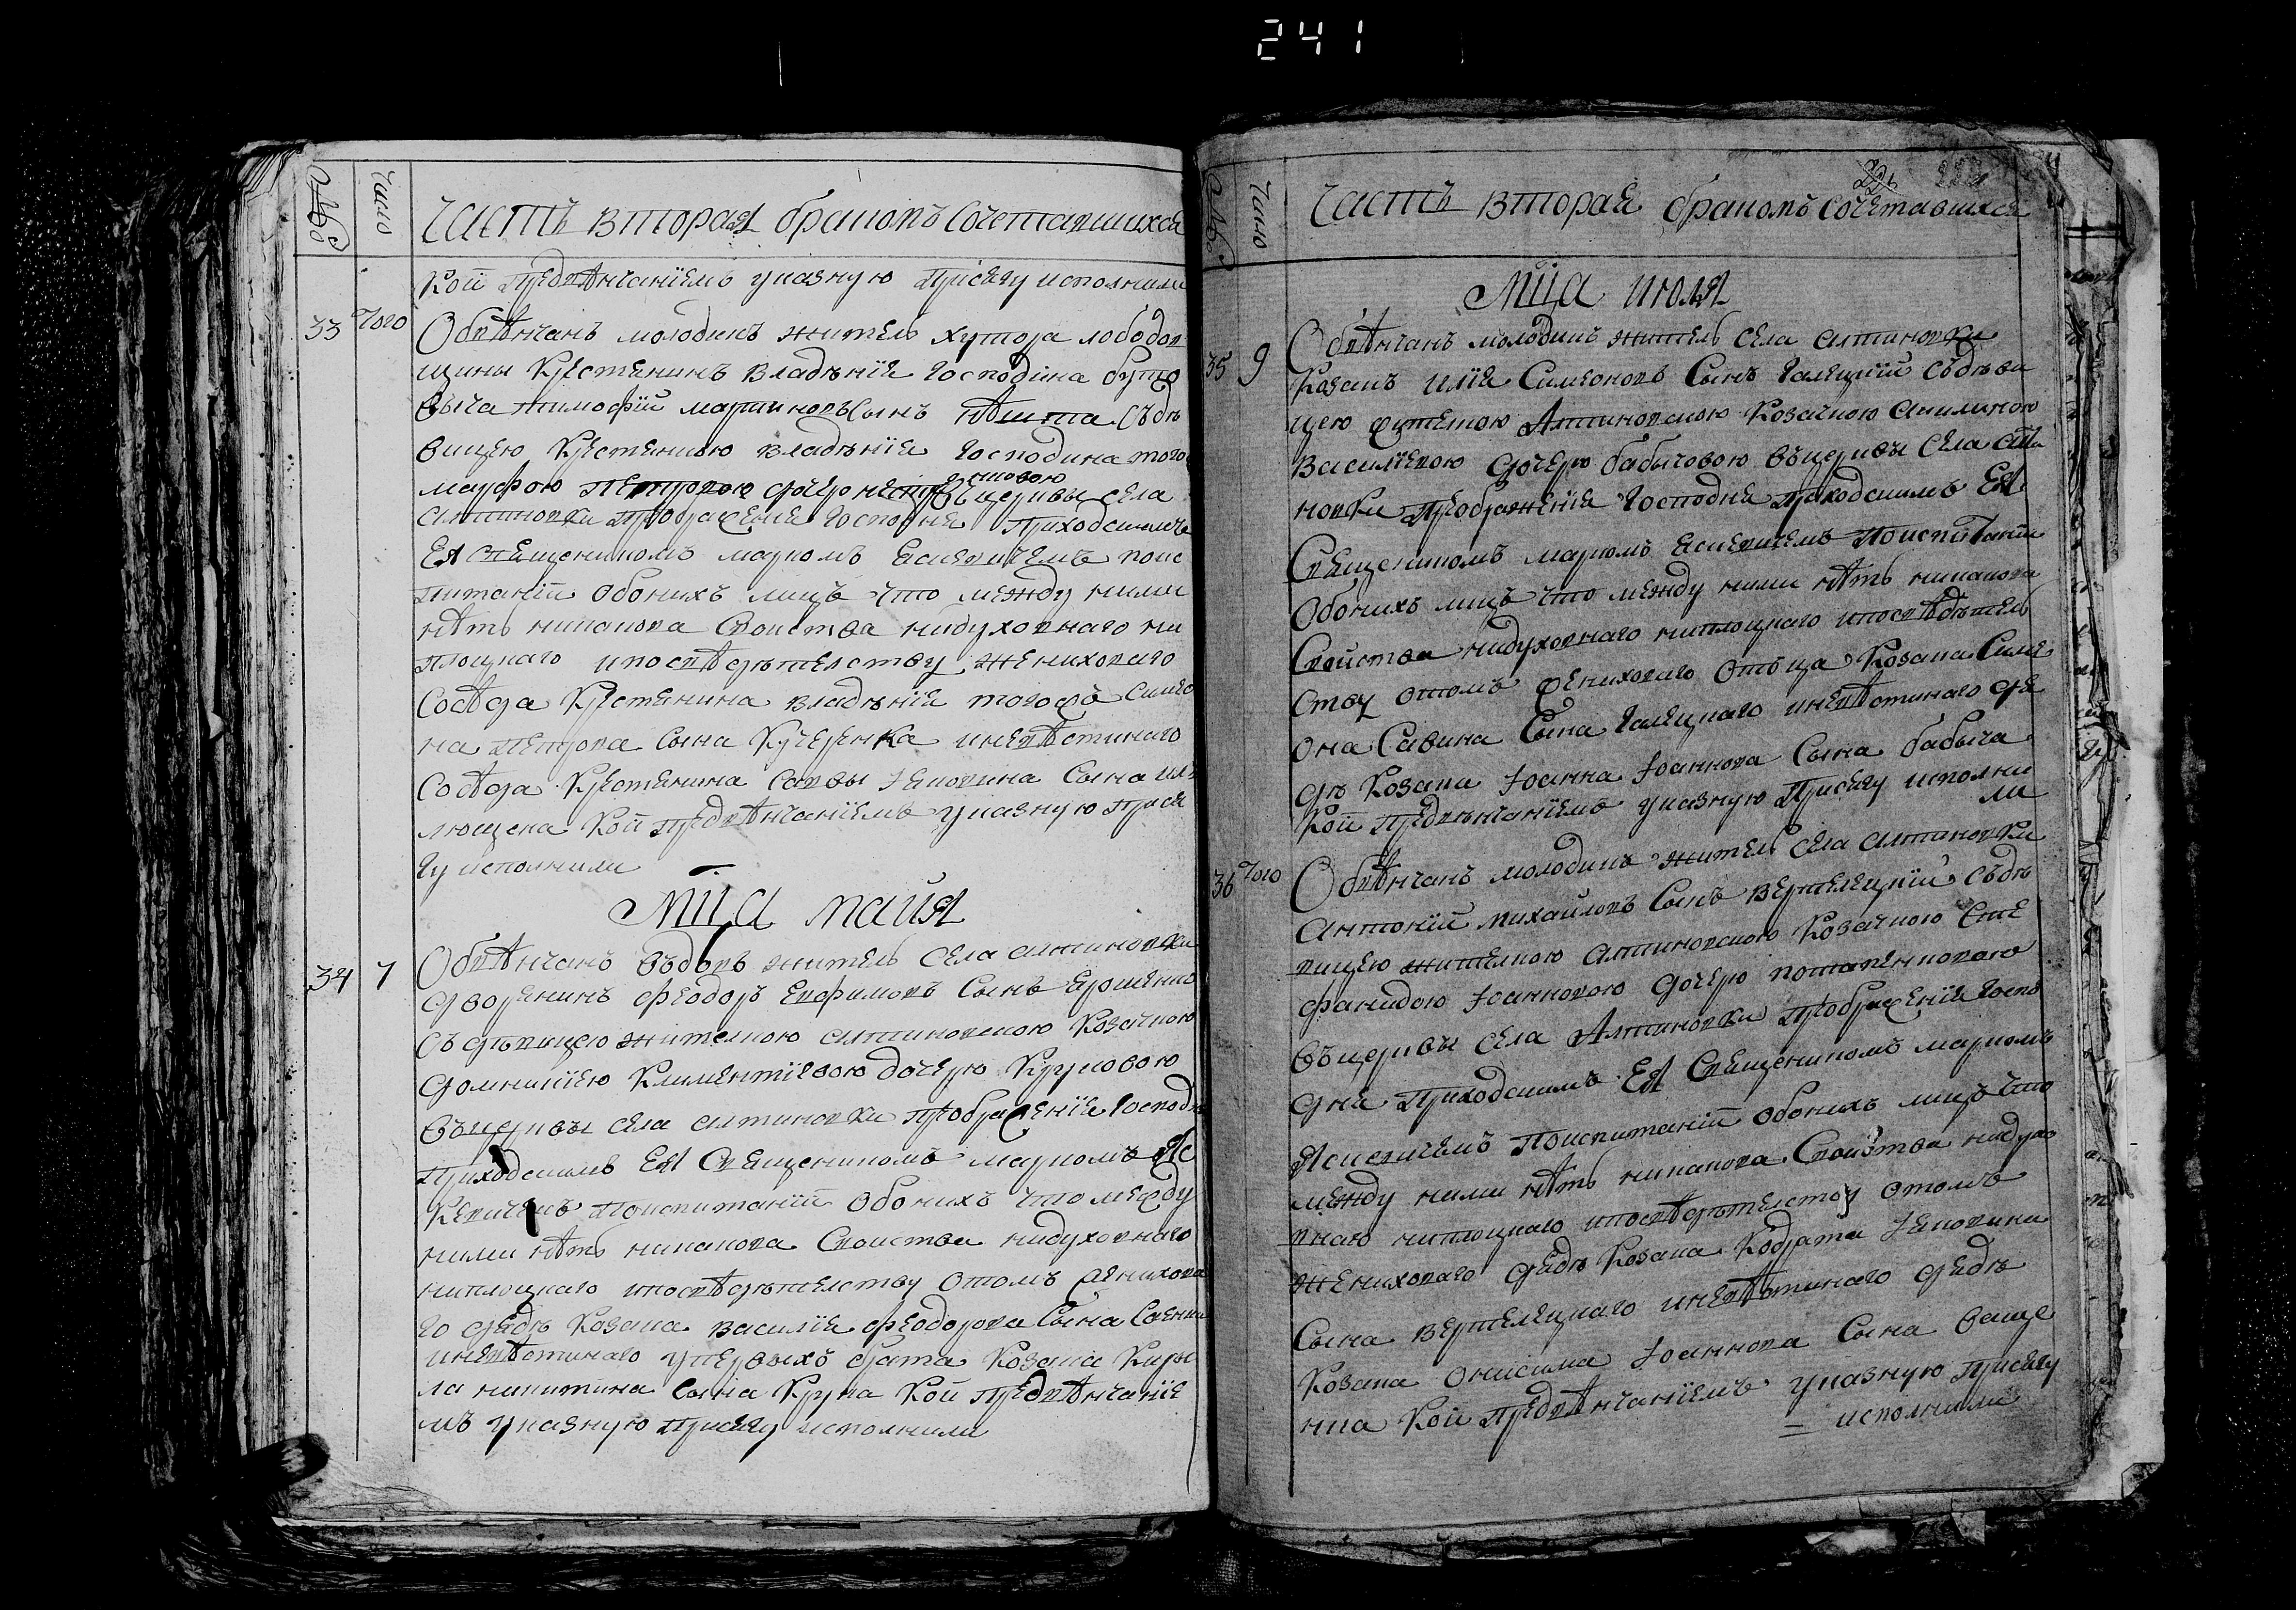 241
№
Число
Часть вторая бракомъ сочетавшихся
кои предвѣнчаніемъ указную присягу исполнили
33 Того Обвѣнчанъ молодикъ житель хутора лободов
щины крестянинъ владѣнія господина буто
вича тимофій мартиновъ сынъ съ дѣ
вицею крестянкою владѣнія господина того
марфою петровою дочерю въ церквы села
алтиновки преображенія господня приходскимъ
Ея священникомъ маркомъ Ясневичемъ поис
питаніи обоихъ лицъ что между ними
нѣтъ никакова своиства нидуховнаго ни
плоцкаго ипосвѣдѣтелству жениховаго
сосѣда крестянина владѣнія тогожъ симео
на петрова сына Кучеренка иневѣстинаго
сосѣда крестянина саввы Іяковина сына
кои предвѣнчаніемъ указную прися
гу исполнили
Мца майя
34 7 Обвѣнчанъ въдовъ житель села алтиновки
дворянинъ феодоръ Евфимовъ сынъ Ярошенко
съ дѣвицею жителкою алтиновскою козачкою
домникіею климентіевою дочерю Круковою
въ церквы села алтиновки преображенія господня
приходскимъ Ея священникомъ маркомъ Яс
невичемъ поиспитаніи обоихъ что между
ними нѣтъ никакова своиства нидуховнаго
ниплоцкаго ипосвѣдѣтелству отомъ женихова
го дядѣ козака василія феодорова сына
иневѣстинаго упервыхъ брата козака Киры
ла никитина сына Крука кои предвѣнчаніе
мъ указную присягу исполнили
№
Число
Часть вторая бракомъ сочетавшихся
Мца июля
35 9 Обвѣнчанъ молодикъ житель села алтиновки
козакъ илія симеоновъ сынъ Галяцкій съ дѣви
цею жителкою Алтиновскою козачкою акилиною
василіевою дочерю бабычовою въ церквы села алти
новки преображенія господня приходскимъ Ея
священникомъ маркомъ Ясневичемъ поиспитаніи
обоихъ лицъ что между ними нѣтъ никакова
свойства нидуховнаго ниплоцкаго ипосвѣдѣтел
ству отомъ жениховаго отъца козака симе
она савина сына Галяцкаго иневѣстинаго дя
дѣ козака Іоанна Іоаннова сына бабыча
кои предвѣнчаніемъ указную присягу исполни
ли
36 Того Обвѣнчанъ молодикъ житель села алтиновки
антоній михайловъ сынъ вертелецкій съ дѣ
вицею жителкою алтиновскою козачкою сте
фанидою Іоанновою дочерю
въ церквы села Алтиновки преображенія госпо
дня приходскимъ Ея священникомъ маркомъ
Ясневичемъ поиспитаніи обоихъ лицъ что
между ними нѣтъ никакова своиства нидухо
внаго ниплоцкаго ипосвѣдѣтелству отомъ
жениховаго дядѣ козака кодрата Іяковина
сына вертелецкаго иневѣстинаго дядѣ
козака онисима Іоаннова сына ваще
нка кои предвѣнчаніемъ указную присягу
= исполнили